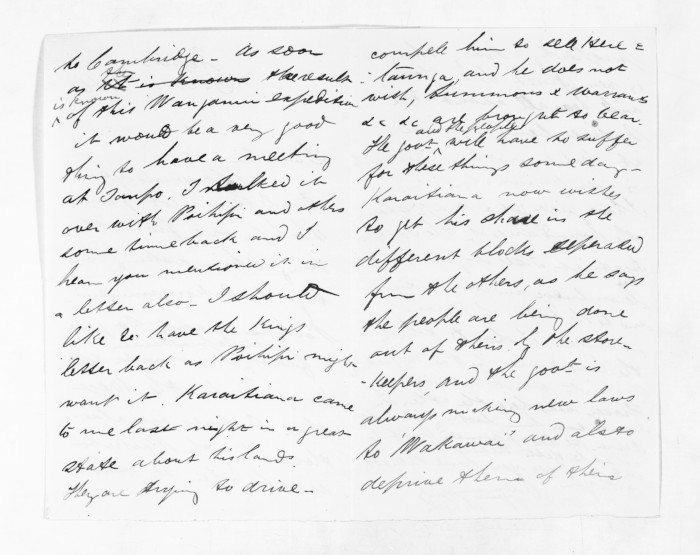 to Cambridge - As soon
as the it is known the result
is known
of this Wanganui expedition
it would be a very good
thing to have a meeting
at Taupo. I talked it
over with Poihipi and others
some time back and I
hear you mentioned it in
a letter also - I should
like to have the Kings
letter back as Poihipi might
want it. Karaitiana came
to me last night in a great
state about his lands.
They are trying to drive -
compell him to sell Here=
-taunga, and he does not
wish, Summons & warrants
&c &c are brought to bear.
and the people
The govt will have to suffer
for these things some day -
Karaitiana now wishes
to get his share in the
different blocks seperated
from the others, as he says
the people are being done
out of theirs by the store-
-keepers, and the govt is
always making new laws
to "Wakawai" and also to
deprive them of their